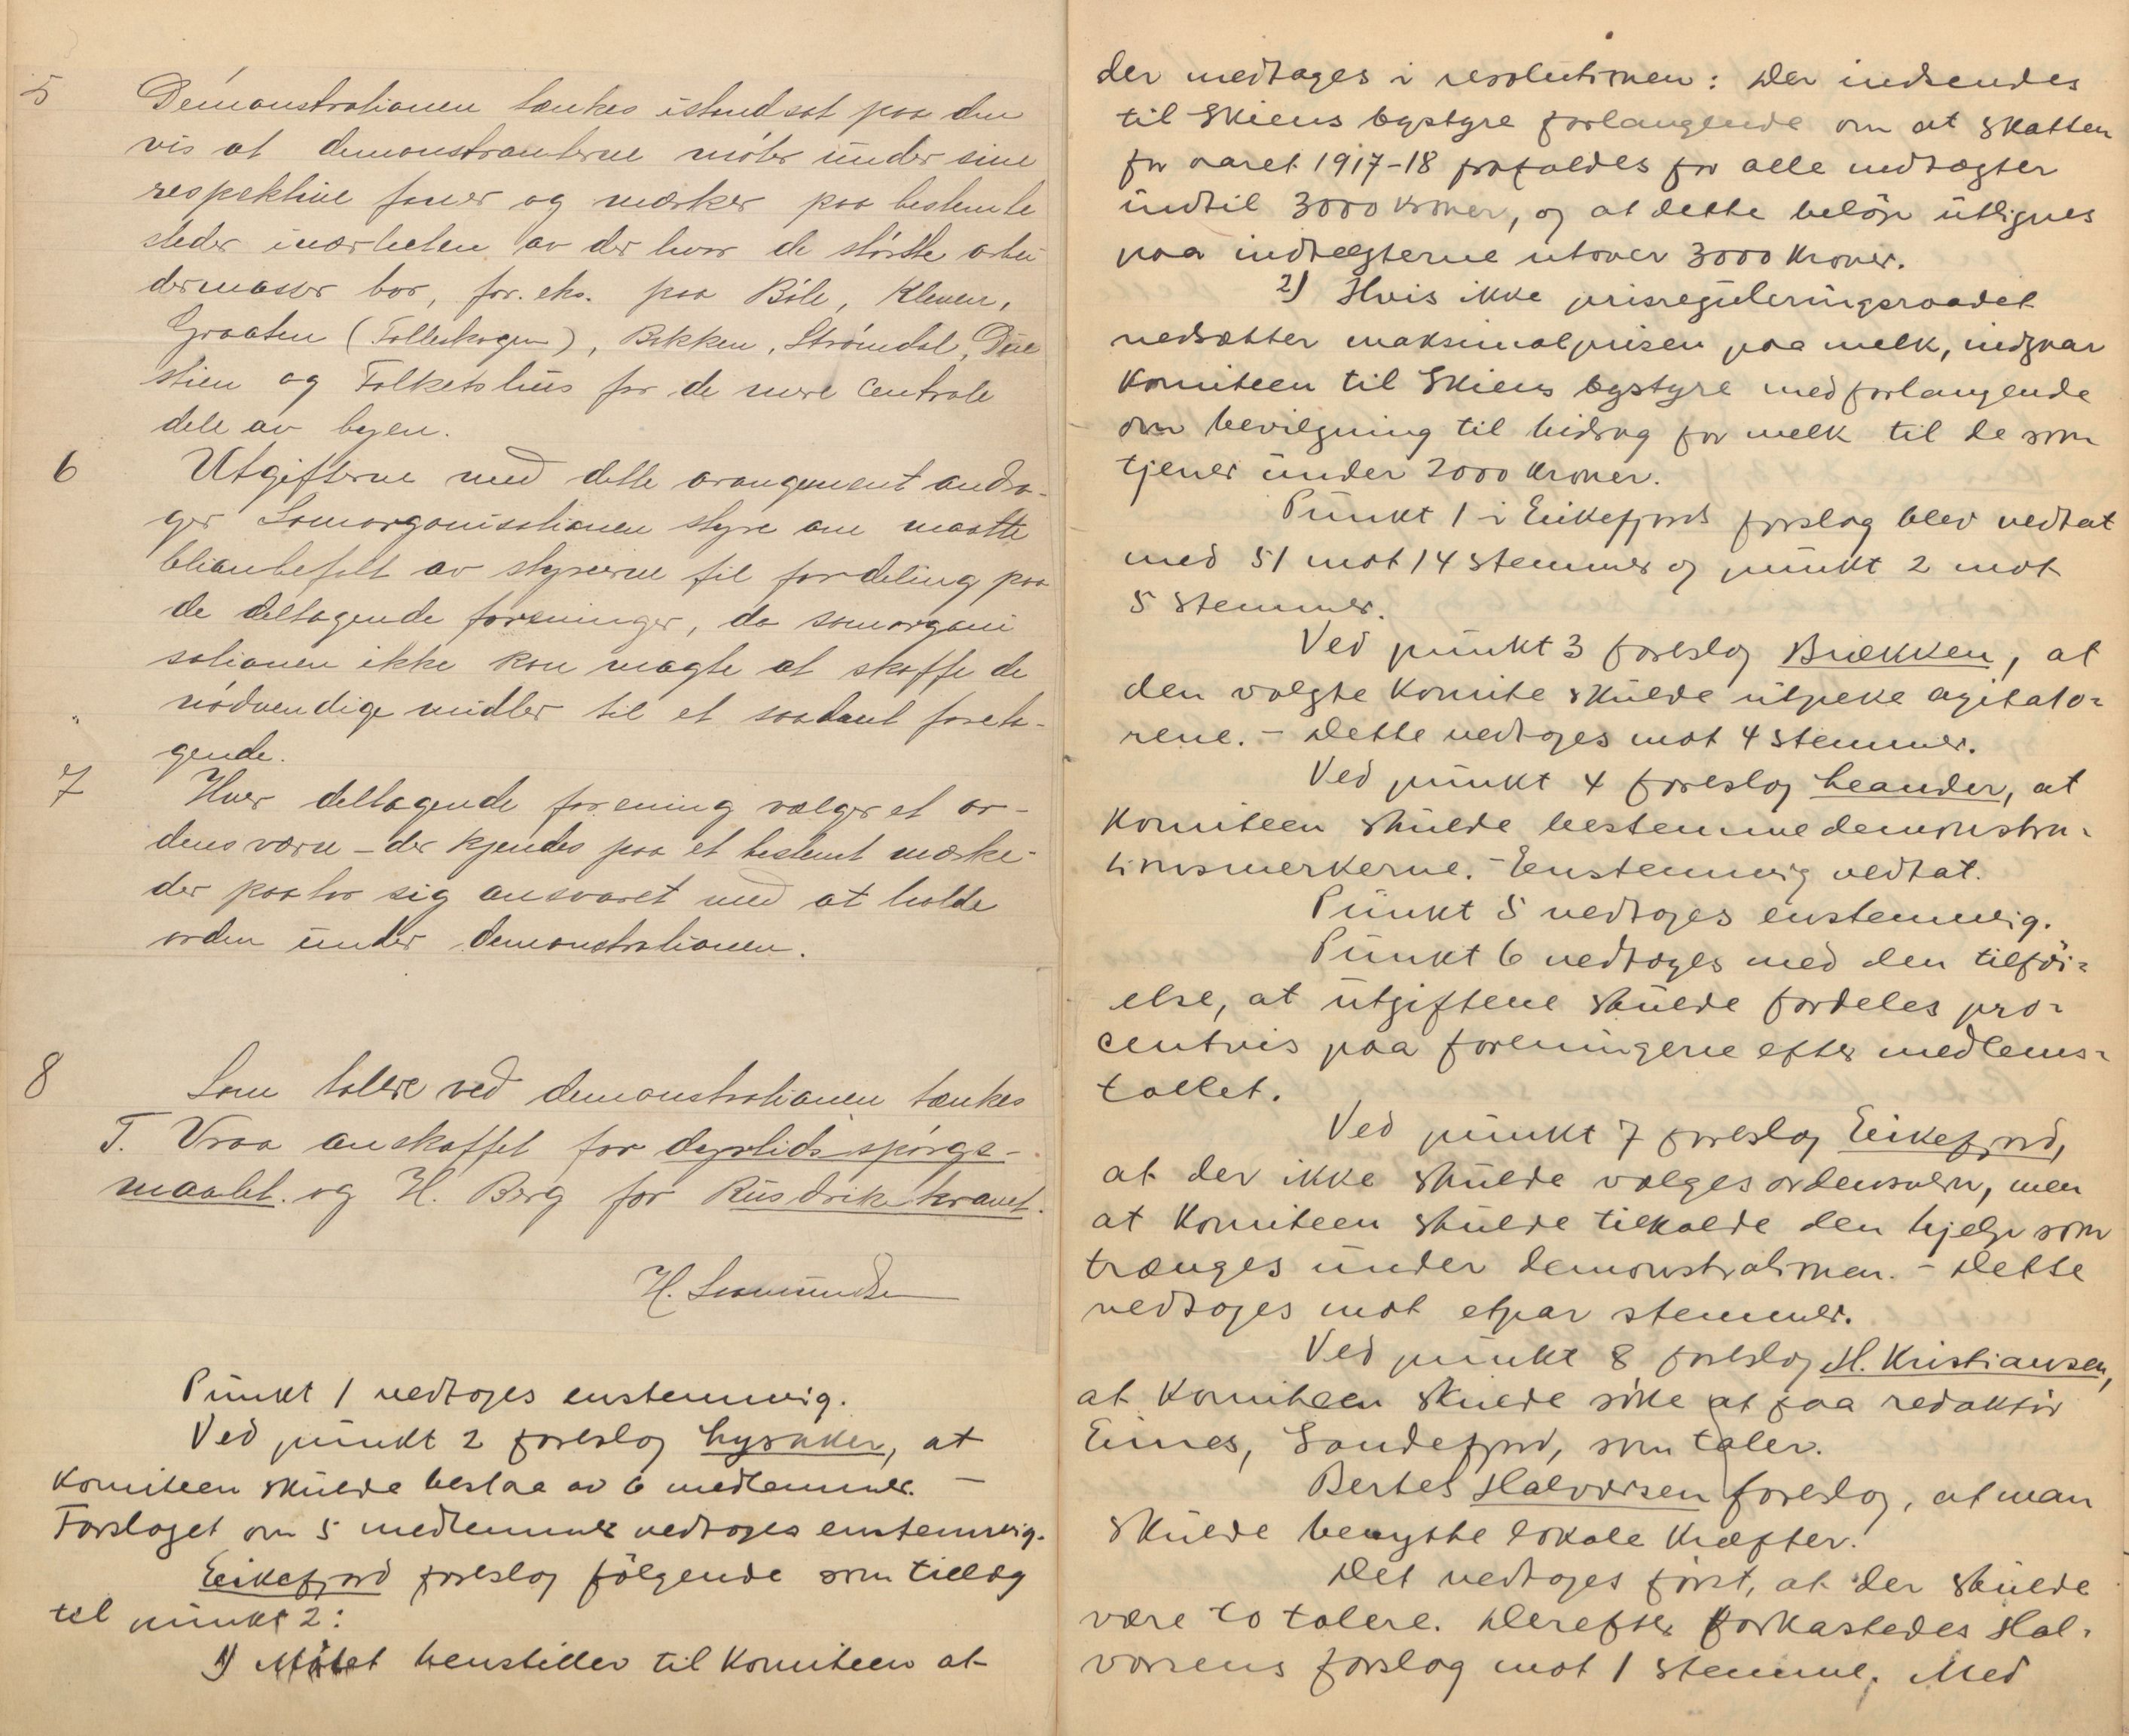 5 Demonstrationen tænkes istandsat paa den
vis at demonstranterne møter under sine
respektive faner og mærker paa bestemte
steder inærheten av der hvor de største arbei
dermasser bor, for. eks. paa Bøle, Kleven,
Graaten (Folleskogen), Bakken, Strømdal, Due
stien og Folketshus for de mere centrale
dele av byen.
6 Utgifterne med dette arangement andra-
ger Samorganisationen styre om maatte
blianbefalt av styrerne til fordeling paa
de deltagende foreninger, da samorgani
sationen ikke kan magte at skaffe de
nødvendige midler til et saadant foreta-
gende.
7 Hver deltagende forening vælger et or-
densværn - der kjendes paa et bestemt mærke-
der paatar sig ansvaret med at holde
orden under demonstrationen.
8 Som talere ved demonstrationen tænkes
T. Vraa anskaffet for dyrtidsspørgs-
maalet. og H. Berg for Rusdrikkravet.
H.
Punkt 1 vedtoges enstemmig.
Ved punkt 2 foreslog Lysaker, at
Komiteen skulde bestaa av 6 medlemmer. —
Forslaget om 5 medlemmer vedtoges enstemmig.
Eikefjord foreslog følgende som tillæg
til punkt 2:
1) Møtet henstiller til Komiteen at
der medtages i resolutionen: Der indsendes
til Skiens bystyre forlangende om at skatten
for aaret 1917-18 frafaldes for alle indtægter
indtil 3000 kroner, og at dette beløp utlignes
paa indtægterne utover 3000 kroner.
2) Hvis ikke prisreguleringsraadet
nedsætter maksimalprisen paa melk, indgaar
Komiteen til Skiens bystyre med forlangende
om bevilgning til bidrag for melk til de som
tjener under 2000 kroner.
Punkt 1 i Eikefjords forslag blev vedtat
med 51 mot 14 stemmer og punkt 2 mot
5 stemmer.
Ved punkt 3 foreslog Brækken, at
den valgte komite skulde utpeke agitato-
rene. - Dette vedtoges mot 4 stemmer.
Ved punkt 4 foreslog Leander, at
Komiteen skulde bestemme demonstra-
tionsmerkerne. - Enstemmig vedtat.
Punkt 5 vedtoges enstemmig.
Punkt 6 vedtoges med den tilføi-
else, at utgiftene skulde fordeles pro-
centvis paa foreningene efter medlems-
tallet.
Ved punkt 7 foreslog Eikefjord,
at der ikke skulde vælges ordensvern, men
at Komiteen skulde tilkalde den hjelp som
trænges under demonstrationen. - Dette
vedtoges mot etpar stemmer.
Ved punkt 8 foreslog H. Kristiansen,
at Komiteen skulde søke at faa redaktør
Eines, Sandefjord, som taler.
Bertel Halvorsen foreslog, at man
skulde benytte lokale kræfter.
Det vedtoges først, at der skulde
være to talere. Derefter forkastedes Hal-
vorsens forslag mot 1 stemme. Med